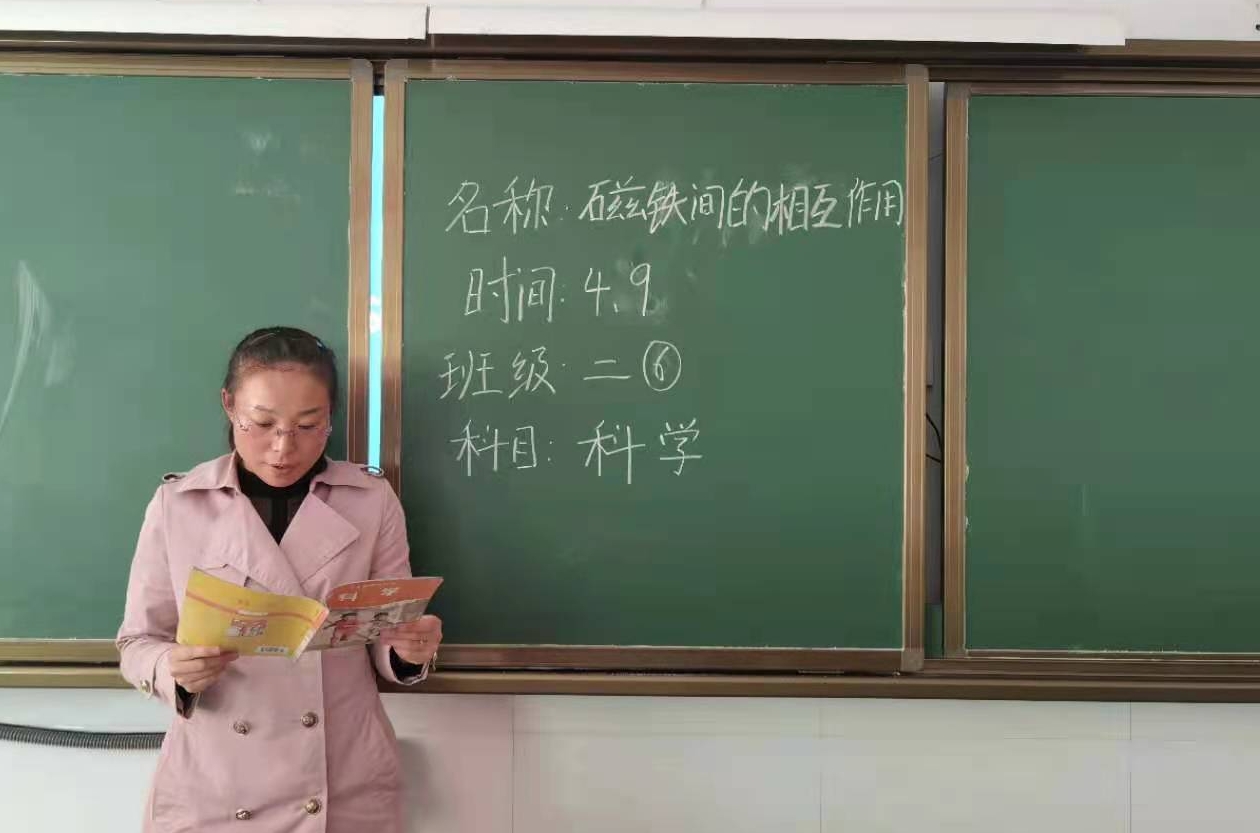 名称:磁铁间的相互作用
时间:4.9
班级:二⑥
科目:科学
科学